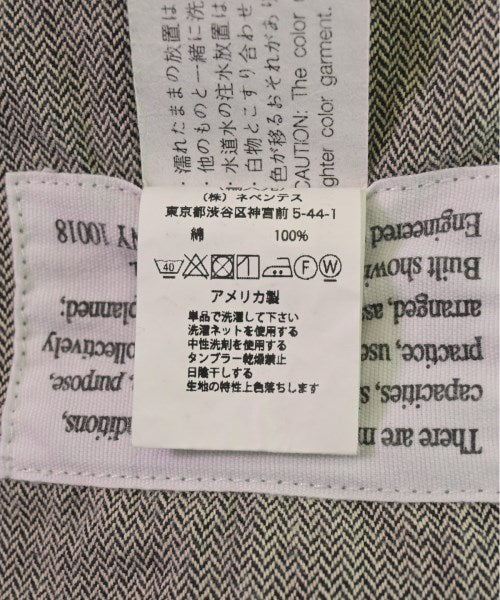 ・濡れたままの放置は
・他のものと一緒に洗
・水道水の注水放置は
・白物とこすり合わせ
色が移るおそれがあり
CAUTION: The color
ghter color garment.
(株) ネペンテス
東京都渋谷区神宮前 5-44-1
綿 100%
40
F
W
アメリカ製
単品で洗濯して下さい
洗濯ネットを使用する
中性洗剤を使用する
タンブラー乾燥禁止
日陰干しする
生地の特性上色落ちします
There are m
nditions,
capacities, s
, purpose,
practice, use
ollectively
arranged, as
planned,
Built showi
Engineered
NY 10018